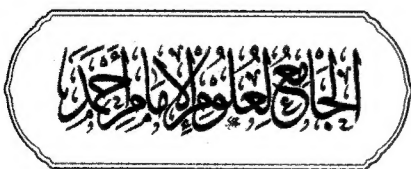 الجَامِعُ لِعُلُومِ الإِمَامِ أَحْمَدَ